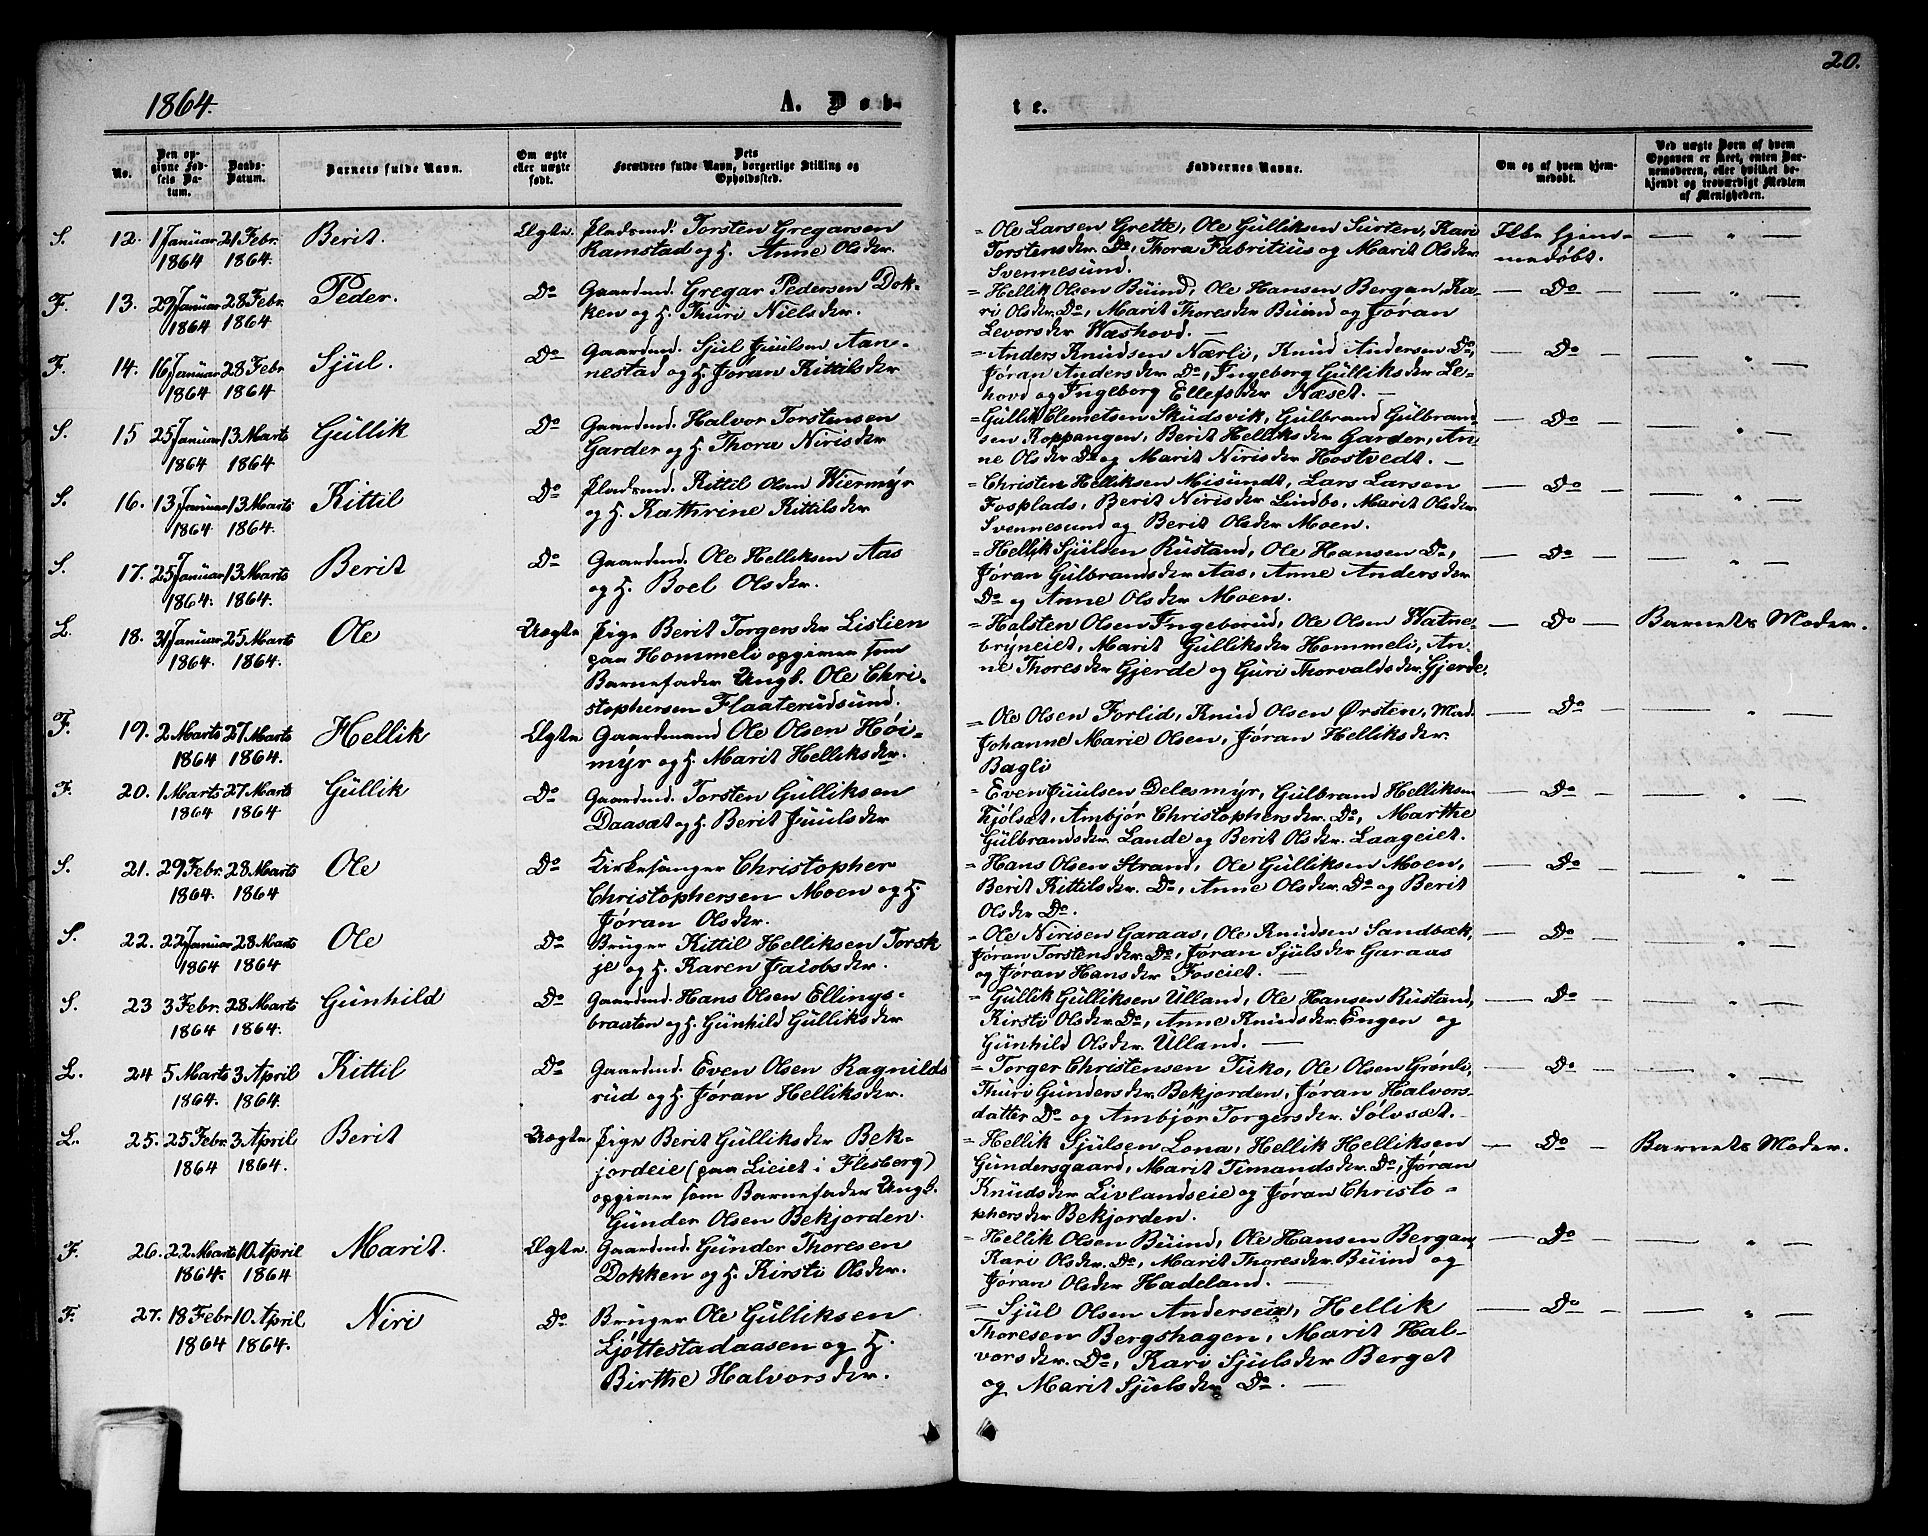 20.
1864.
A. Døb-
te.
No.
Den op-
givne Fød-
sels Da-
tum.
Daabs-
Datum.
Barnets fulde Navn.
Om ægte
eller uægte
født.
Dets
Forældres fulde Navn, borgerlige Stilling og
Opholdssted.
Faddernes Navne.
Om og af hvem hjem-
medøbt.
Ved uægte Børn af hvem
Opgaven er skeet, enten Bar-
nemoderen, eller hvilket be-
kjendt og troværdigt Medlem
af Menigheden.
S. 12. 1 Januar 1864 21 Febr. 1864. Berit. Ægte.
Pladsmd. Torsten Gregarsen
Ramstad og H. Anne Olsdtr.
= Ole Larsen Grette, Ole Gülliksen Surten, Kari
Torstensdtr. Do, Thora Fabritius og Marit Olsdtr.
Svennesund.
Ikke hjem-
medøbt. — „ —
F. 13. 29 Januar 1864 28 Febr. 1864 Peder. Do
Gaardmd. Gregar Pedersen Dok-
ken og H. Thuri Nielsdtr.
= Hellik Olsen Büind, Ole Hansen Bergan, Ka-
ri Olsdtr. Do, Marit Thoresdtr Büind og Jøran
Levorsdtr Wæshovd. —
— Do — — „ —
F. 14. 16 Januar 1864 28 Febr 1864 Sjül. Do
Gaardmd. Sjül Jüülsen Aan-
nestad og H. Jøran Kittilsdtr
= Anders Knüdsen Nærli, Knüd Andersen Do,
Jøran Andersdtr Do, Ingeborg Gülliksdtr Le-
hovd og Ingeborg Ellefsdtr Næset. —
— Do — — „ —
S. 15 25 Januar 1864 13 Marts 1864 Güllik Do
Gaardmd. Halvor Torstensen
Garder og H. Thora Nirisdtr
= Güllik Clemetsen Sküdsvik, Gülbrand Gülbrand-
sen Koppangen, Berit Helliksdtr Garder, An-
ne Olsdtr Do og Marit Nirisdtr Hostvedt. —
— Do — — „ —
S. 16. 13 Januar 1864 13 Marts 1864. Kittil Do
Pladsmd. Kittil Olsen Wiermÿr
og H. Kathrine Kittilsdtr
= Christen Helliksen Misündt, Lars Larsen
Fosplads, Berit Nirisdtr Lindbo, Marit Olsdtr
Svennesund og Berit Olsdtr Moen.
— Do — — „ —
S. 17. 25 Januar 1864. 13 Marts 1864. Berit Do
Gaardmd. Ole Helliksen Aas
og H. Boel Olsdtr.
= Hellik Sjülsen Rüstand, Ole Hansen Do,
Jøran Gülbrandsdtr Aas, Anne Andersdtr
Do og Anne Olsdtr Moen.
— Do — — „ —
L. 18. 31 Januar 1864. 25 Marts 1864. Ole Uægte
Pige Berit Torgersdtr Lislien
paa Hommeli opgiver som
Barnefader Ungk. Ole Chri-
stophersen Flaaterüdsünd.
= Halsten Olsen Ingeborüd, Ole Olsen Watne-
brÿneiet, Marit Gülliksdtr Hommeli, An-
ne Thoresdtr Gjerde og Güri Thorvaldsdtr. Gjerde.
— Do — Barnets Moder.
F. 19. 2 Marts 1864 27 Marts 1864. Hellik Ægte
Gaardmand Ole Olsen Høi-
mÿr og H. Marit Helliksdtr.
= Ole Olsen Forlid, Knüd Olsen Ørsten, Mad.
Johanne Marie Olsen, Jøran Helliksdtr.
Bagli
— Do — — „ —
F. 20. 1 Marts 1864 27 Marts 1864 Güllik Do
Gaardmd. Torsten Gülliksen
Daasæt og H. Berit Jüülsdtr
= Even Jüülsen Delesmÿr, Gülbrand Helliksen
Kjølset, Ambjør Christophersdtr. Do, Marthe
Gülbrandsdtr. Lande og Berit Olsdtr. Laageiet.
— Do — — „ —
S. 21. 29 Febr. 1864. 28 Marts 1864 Ole Do
Kirkesanger Christopher
Christophersen Moen og H.
Jøran Olsdtr.
= Hans Olsen Strand, Ole Gülliksen Moen,
Berit Kittilsdtr. Do, Anne Olsdtr. Do og Berit
Olsdtr Do.
— Do — — „ —
S. 22. 22 Januar 1864 28 Marts 1864 Ole Do
Brüger Kittil Helliksen Torsk
je og H. Karen Jacobsdtr.
= Ole Nirisen Garaas, Ole Knüdsen Sandbæk,
Jøran Torstensdtr. Do, Jøran Sjülsdtr Garaas
og Jøran Hansdtr Foseiet. —
— Do — — „ —
S. 23 3 Febr. 1864 28 Marts 1864. Günhild Do
Gaardmd. Hans Olsen Ellings-
braaten og H. Günhild Gülliksdtr
= Güllik Gülliksen Ülland, Ole Hansen Rüstand,
Kirsti Olsdtr. Do, Anne Knüdsdtr. Engen og
Günhild Olsdtr. Ülland. —
— Do — — „ —
L. 24 5 Marts 1864. 3 April 1864. Kittil Do
Gaardmd. Even Olsen Ragnilds
rüd og H. Jøran Helliksdtr.
= Torger Christensen Tüko, Ole Olsen Grønli,
Thüri Gündersdtr. Bekjorden, Jøran Halvors-
datter Do og Ambjør Torgersdtr. Sølvsæt. —
— Do — — „ —
L. 25. 25 Febr. 1864 3 April 1864. Berit Uægte
Pige Berit Gülliksdtr Bek-
jordeie (paa Lieiet i Flesberg)
opgiver som Barnefader Ungk.
Günder Olsen Bekjorden.
= Hellik Sjülsen Lona, Hellik Helliksen
Gündersgaard, Marit Timandsdtr. Do, Jøran
Knüdsdtr Livlandseie og Jøran Christo-
phersdtr Bekjorden.
— Do — Barnets Moder.
F. 26. 22 Marts 1864. 10 April 1864 Marit. Ægte.
Gaardmd. Günder Thoresen
Dokken og H. Kirsti Olsdtr.
= Hellik Olsen Büind, Ole Hansen Bergan,
Kari Olsdtr. Do, Marit Thoresdtr Büind og
Jøran Olsdtr Hadeland. —
— Do — — „ —
F. 27. 18 Febr 1864 10 April 1864. Niri Do
Brüger Ole Gülliksen
Ljøttestadaasen og H.
Birthe Halvorsdtr.
= Sjül Olsen Anderseie, Hellik
Thoresen Bergshagen, Marit Hal-
vorsdtr. Do, Kari Sjülsdtr Berget
og Marit Sjülsdtr Do. —
— Do — — „ —